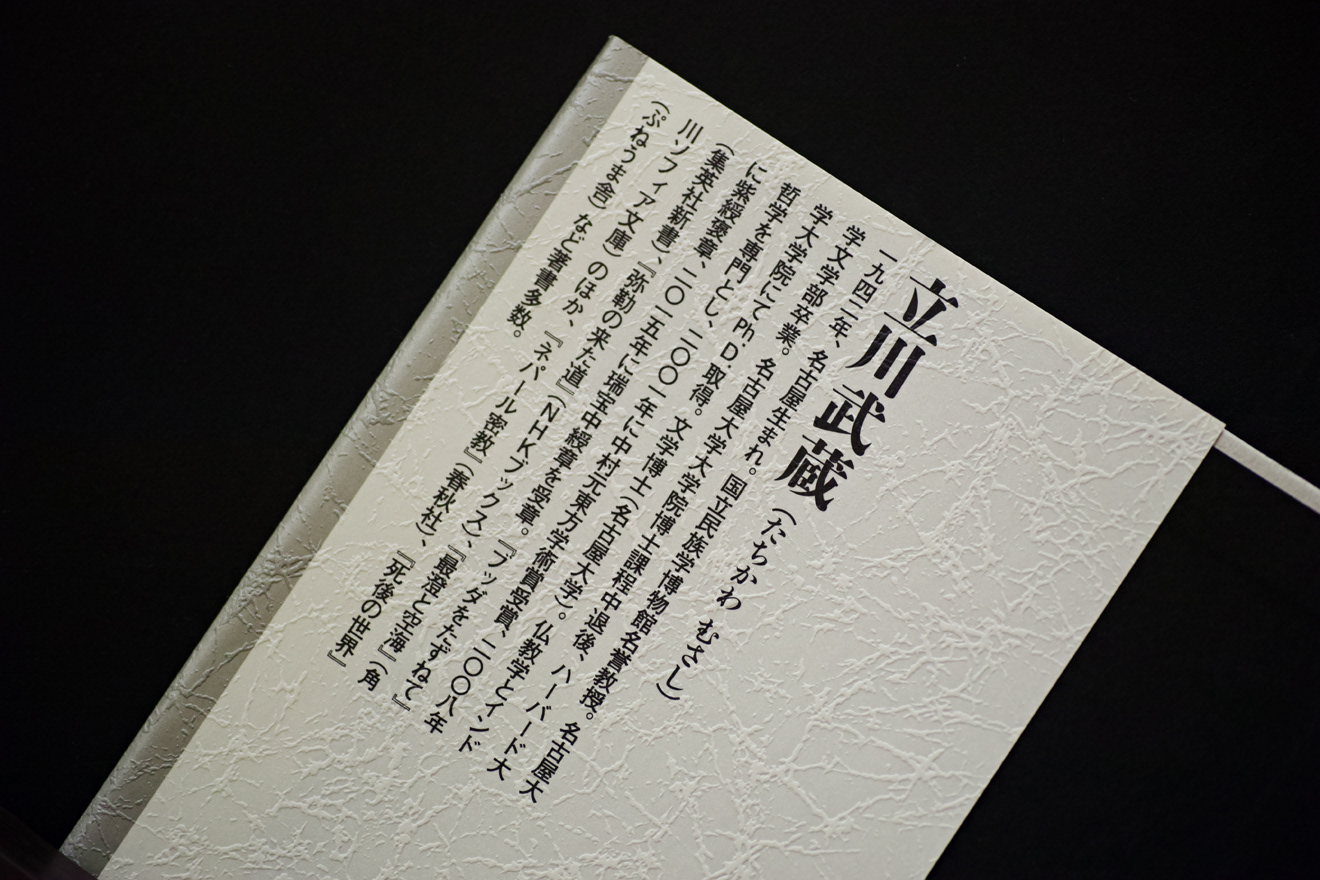 立川武蔵（たちかわ むさし）
一九四二年、名古屋生まれ。国立民族学博物館名誉教授。名古屋大
学文学部卒業。名古屋大学大学院博士課程中退後、ハーバード大
学大学院にてPh.D.取得。文学博士（名古屋大学）。仏教学とインド
哲学を専門とし、二〇〇一年に中村元東方学術賞受賞、二〇〇八年
に紫綬褒章、二〇一五年に瑞宝中綬章を受章。『ブッダをたずねて』
（集英社新書）、『弥勒の来た道』（NHKブックス）、『最澄と空海』（角
川ソフィア文庫）のほか、『ネパール密教』（春秋社）、『死後の世界』
（ぷねうま舎）など著書多数。